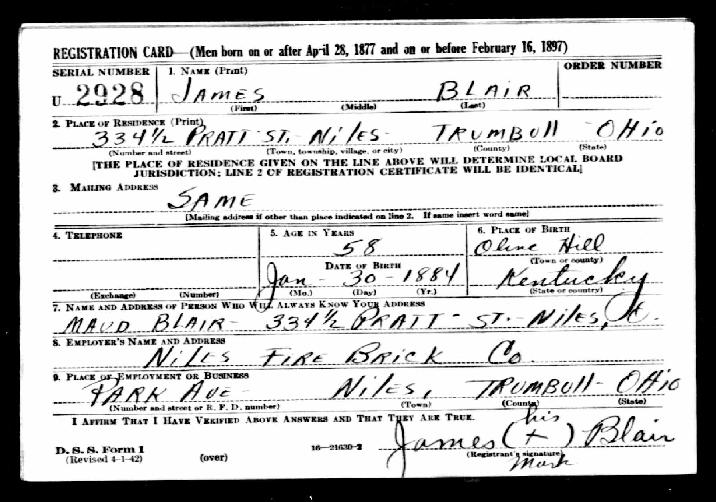 REGISTRATION CARD—(Men born on or after April 28, 1877 and on or before February 16, 1897)
SERIAL NUMBER 1. NAME (Print) ORDER NUMBER
U 2928 JAMES BLAIR
(First) (Middle) (Last)
2. PLACE OF RESIDENCE (Print)
334½ PRATT-ST.- NILES- TRUMBULL - OHIO
(Number and street) (Town, township, village, or city) (County) (State)
[THE PLACE OF RESIDENCE GIVEN ON THE LINE ABOVE WILL DETERMINE LOCAL BOARD
JURISDICTION; LINE 2 OF REGISTRATION CERTIFICATE WILL BE IDENTICAL]
3. MAILING ADDRESS
SAME
[Mailing address if other than place indicated on line 2. If same insert word same]
4. TELEPHONE 5. AGE IN YEARS 6. PLACE OF BIRTH
58 Olive Hill
DATE OF BIRTH (Town or county)
Jan - 30 - 1884 Kentucky
(Exchange) (Number) (Mo.) (Day) (Yr.) (State or country)
7. NAME AND ADDRESS OF PERSON WHO WILL ALWAYS KNOW YOUR ADDRESS
MAUD BLAIR- 334½ PRATT- ST.- NILES, O.
8. EMPLOYER'S NAME AND ADDRESS
NILES FIRE BRICK Co.
9. PLACE OF EMPLOYMENT OR BUSINESS
PARK AVE NILES, TRUMBULL- OHIO
(Number and street or R. F. D. number) (Town) (County) (State)
I AFFIRM THAT I HAVE VERIFIED ABOVE ANSWERS AND THAT THEY ARE TRUE.
his
James (+) Blair
D. S. S. Form 1 16—21630-2 (Registrant's signature)
(Revised 4-1-42) (over) Mark